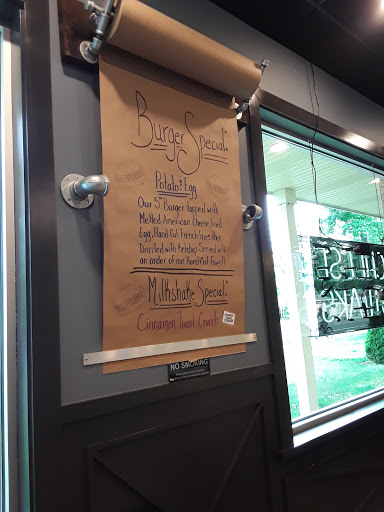 Burger Special:
Potato & Egg
Our 5oz Burger topped with
Melted American Cheese, Fried
Egg, Hand Cut French Fries, then
Drizzled with Ketchup. Served with
an order of our Hand Cut Fries!!
Milkshake Special:
Cinnamon Toast Crunch
NO SMOKING
CHEESE
STEAKS